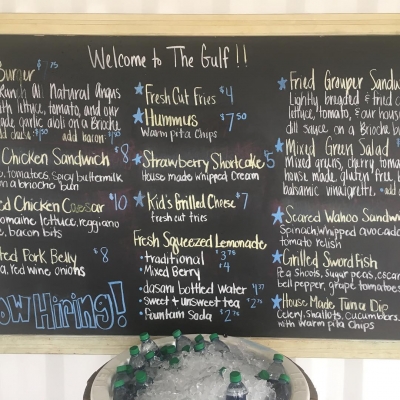 Welcome to The Gulf!!
Burger $7.75
Ranch All Natural Angus
with lettuce, tomato, and our
made garlic aioli on a Brioche
add bacon
Chicken Sandwich $8
tomatoes, spicy buttermilk
on a brioche bun
Chicken Caesar $10
romaine lettuce, reggiano
bacon bits
Pork Belly $8
red wine onions
Now Hiring!
Fresh Cut Fries $4
Hummus $7.50
Warm pita Chips
Strawberry Shortcake 5
House made whipped Cream
Kid's Grilled Cheese $7
fresh cut fries
Fresh Squeezed Lemonade
• traditional $3.75
• Mixed Berry $4
• dasani bottled water
• sweet & unsweet tea $2.75
• fountain Soda $2.75
Fried Grouper Sandw
Lightly breaded & fried
lettuce, tomato, & our hous
dill sauce on a Brioche bu
Mixed Green Salad
Mixed greens, cherry tomat
house made gluten free
balsamic vinaigrette. • add
Seared Wahoo Sandw
Spinach, whipped avocado
tomato relish
Grilled Swordfish
Pea Shoots, Sugar peas,
bell pepper, grape tomatoes
House Made Tuna Dip
Celery, shallots, cucumbers
with warm pita Chips